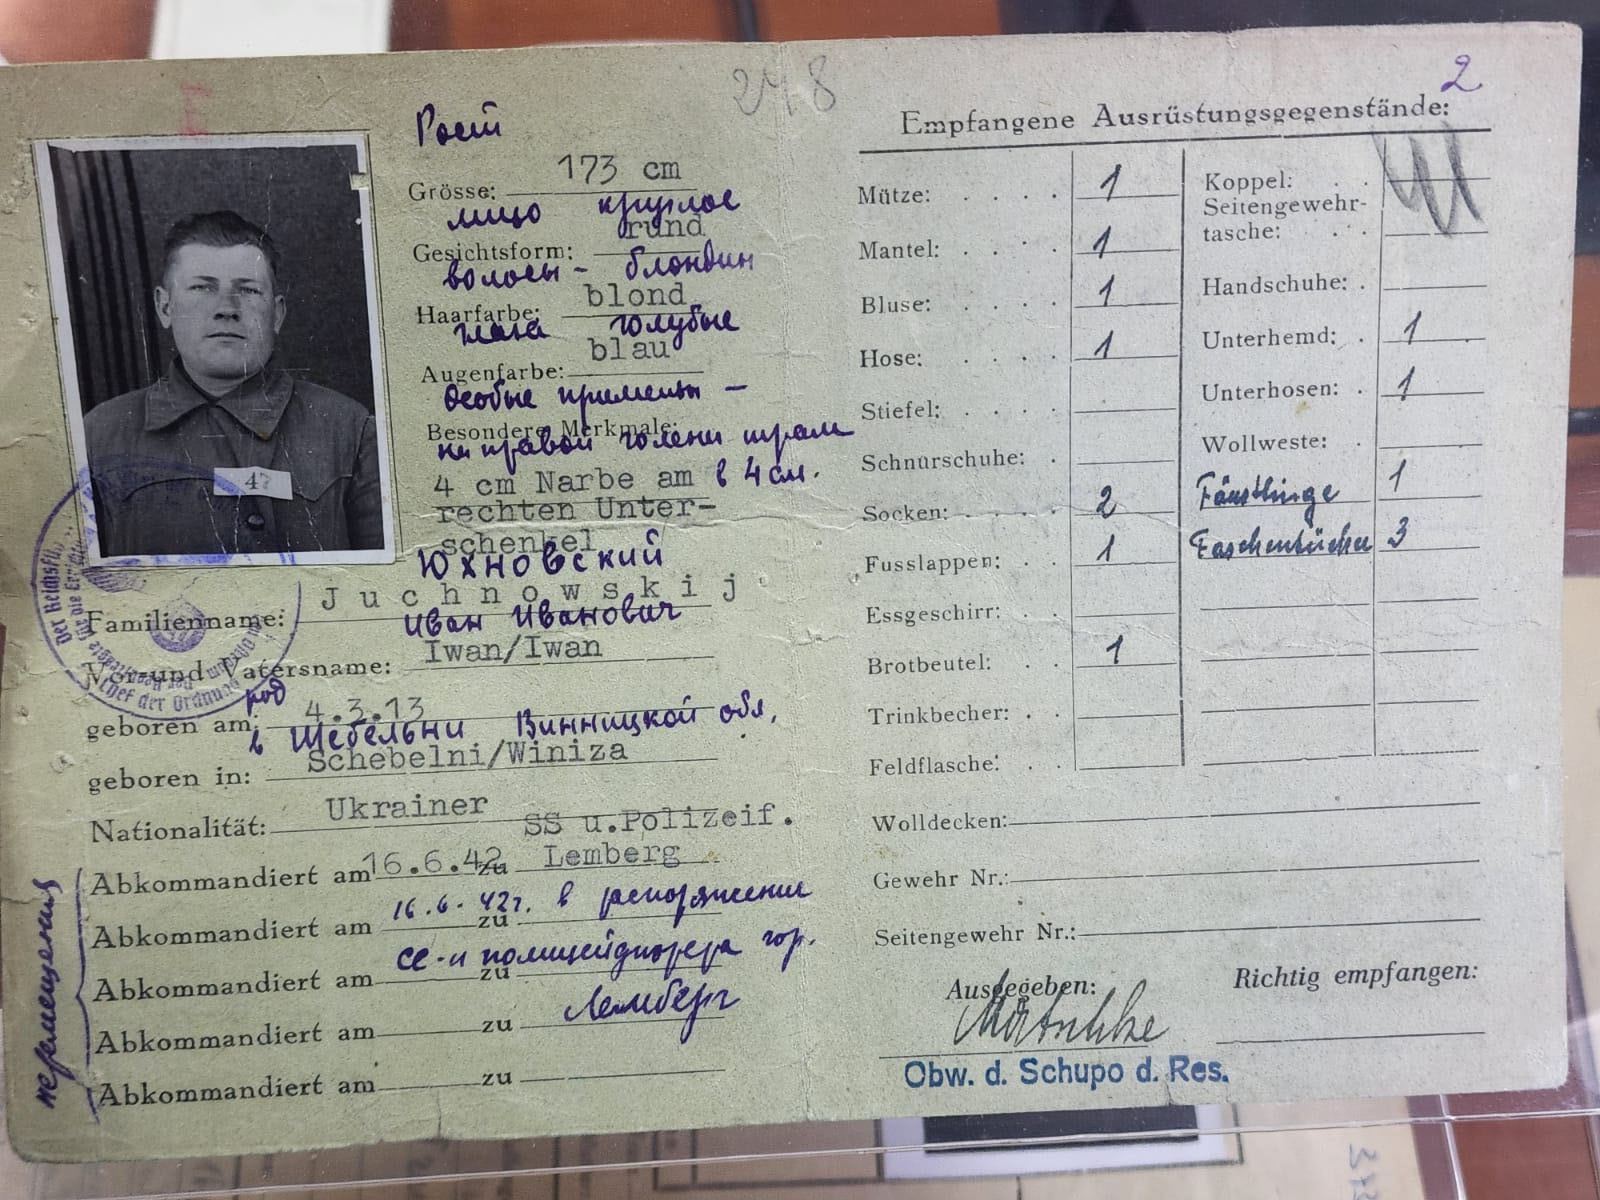 248
Рост
Grösse: 173 cm
лицо круглое
Gesichtsform: rund
волосы - блондин
Haarfarbe: blond
глаза голубые
Augenfarbe: blau
Особые приметы -
Besondere Merkmale:
на правой голени шрам
4 cm Narbe am в 4 см.
rechten Unter-
schenkel
47
Юхновский
Familienname: Juchnowskij
Иван Иванович
Vor-und Vatersname: Iwan/Iwan
род
geboren am: 4.3.13
в Шебельни Винницкой обл.
geboren in: Schebelni/Winiza
Nationalität: Ukrainer
SS u.Polizeif.
Abkommandiert am 16.6.42 zu Lemberg
16.6.42г. в распоряжение
Abkommandiert am zu
СС-и полицейфюрера гор.
Abkommandiert am zu
Лемберг
Abkommandiert am zu
Abkommandiert am zu
перемещения
Der Reichsfü
Chef der Ordnung
2
Empfangene Ausrüstungsgegenstände:
Mütze: . . . . 1
Mantel: . . . . 1
Bluse: . . . . 1
Hose: . . . . 1
Stiefel: . . . .
Schnürschuhe: .
Socken: . . . . 2
Fusslappen: . . 1
Essgeschirr: . .
Brotbeutel: . . 1
Trinkbecher: . .
Feldflasche: . .
Koppel: . .
Seitengewehr-
tasche: . . .
Handschuhe: .
Unterhemd: . 1
Unterhosen: . 1
Wollweste: .
Fäustlinge 1
Taschentücher 3
Wolldecken:
Gewehr Nr.:
Seitengewehr Nr.:
Ausgegeben:
Richtig empfangen:
Obw. d. Schupo d. Res.